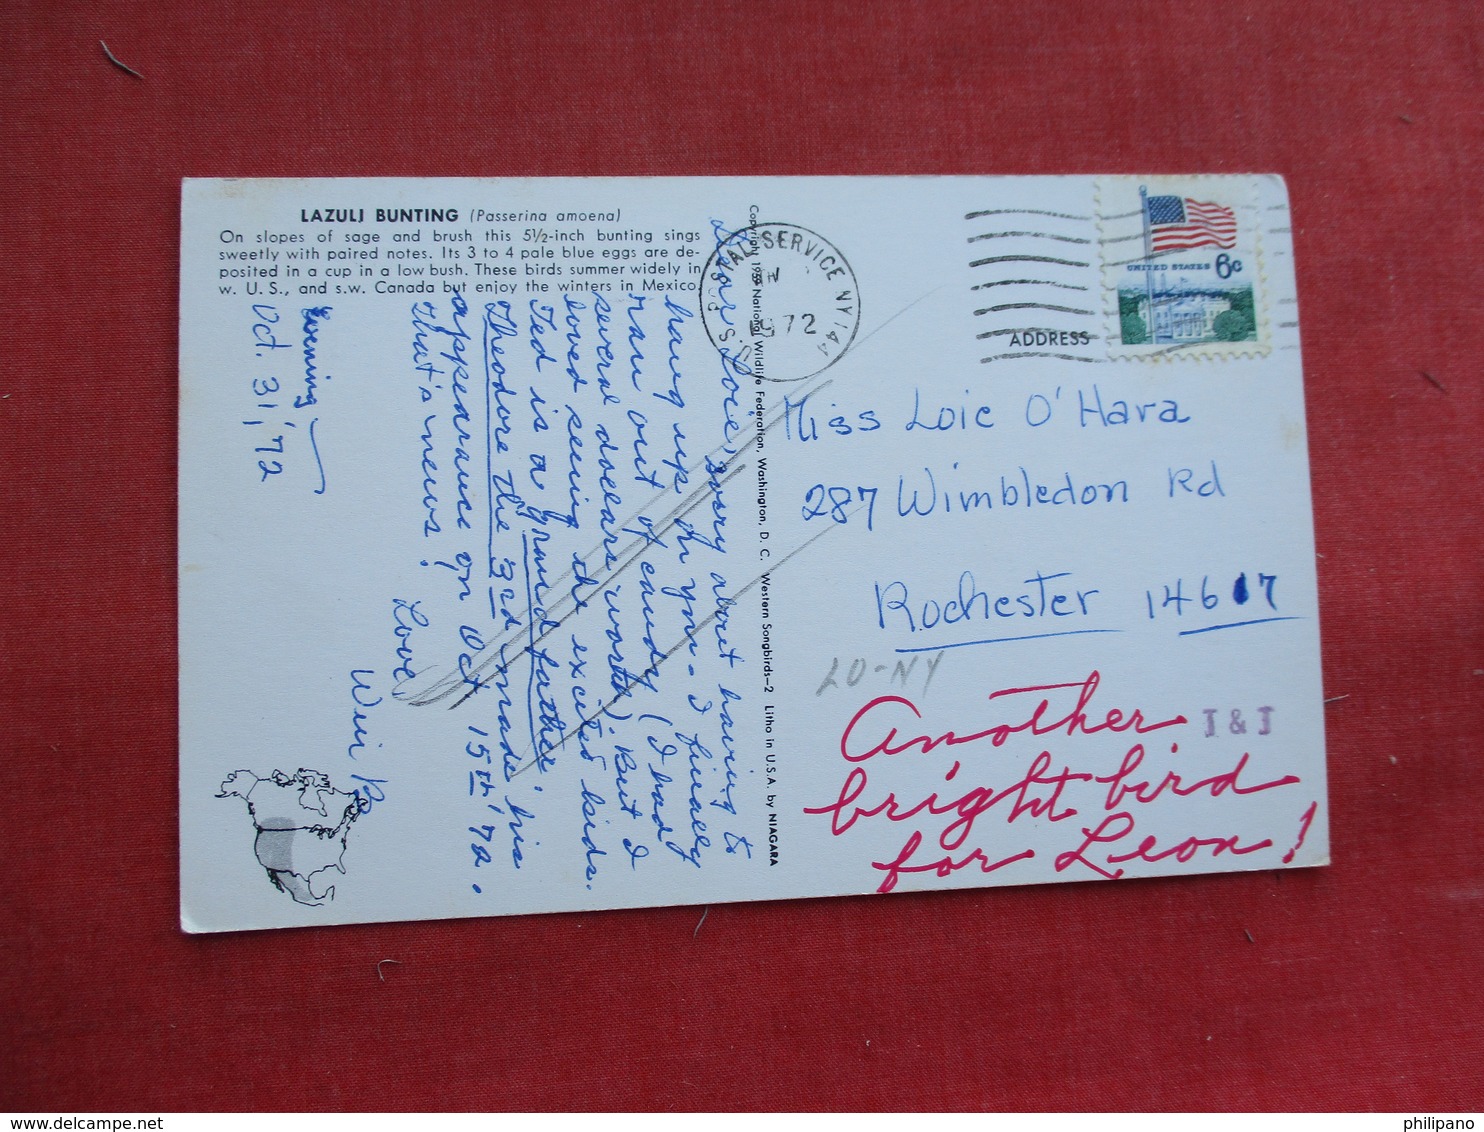 LAZULI BUNTING (Passerina amoena)
On slopes of sage and brush this 5½-inch bunting sings
sweetly with paired notes. Its 3 to 4 pale blue eggs are de-
posited in a cup in a low bush. These birds summer widely in
w. U. S., and s.w. Canada but enjoy the winters in Mexico.
Evening
Oct. 31, '72
Dear Loie, sorry about having to
hang up on you - I finally
ran out of candy (I had
several dollars worth). But I
loved seeing the excited kids.
Ted is a grand father!
Theodore the 3rd made his
appearance on Oct 15th '72.
That's news!
Love,
Copyright 1959 National Wildlife Federation, Washington, D. C. Western Songbirds—2 Litho in U.S.A. by NIAGARA
U.S. POSTAL SERVICE NY 144
1972
UNITED STATES 6c
ADDRESS
Miss Loie O'Hara
287 Wimbledon Rd
Rochester 14617
LO-NY
I & J
Another
bright bird
for Leon!
www.delcampe.net
philipano